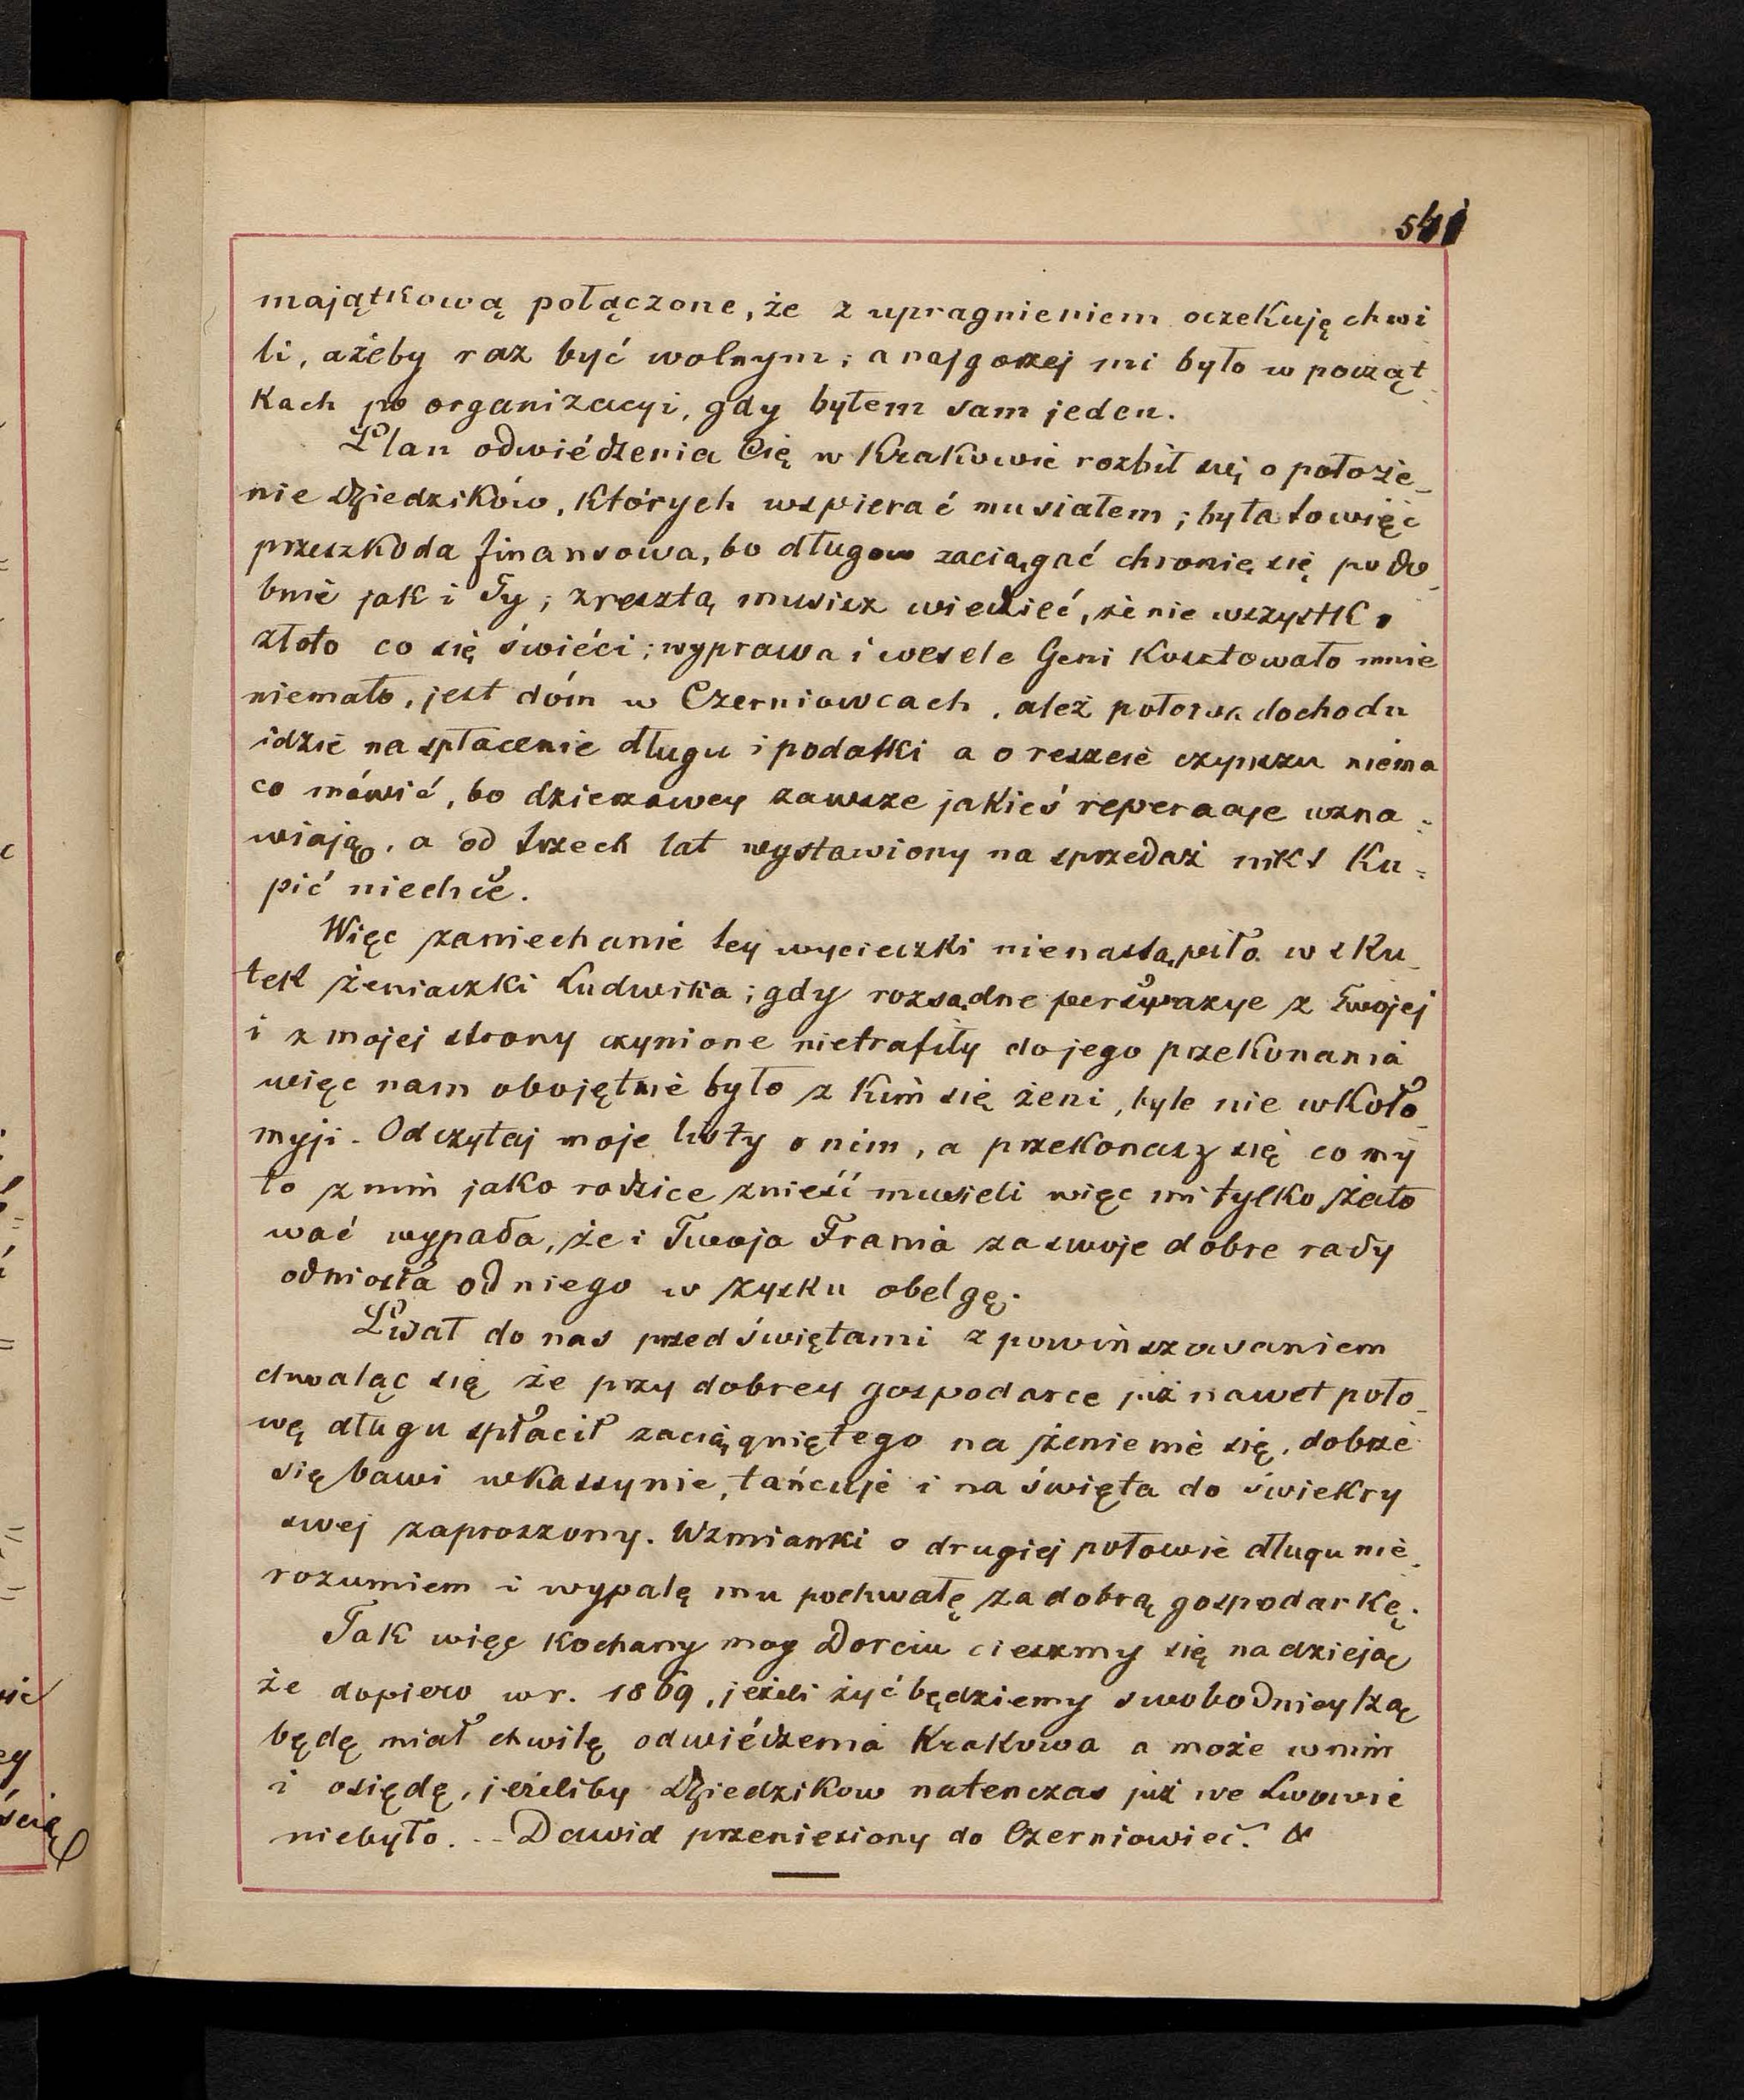 541
majątkową połączone, że z upragnieniem oczekuję chwi
li, ażeby raz być wolnym; a najgorzej mi było w począt
kach po organizacyi, gdy byłem sam jeden.
Plan odwiédzenia Cię w Krakowie rozbił się o położe_
nie Dziedzików, których wspierać musiałem; była to więc
przeszkoda finansowa, bo długow zaciągać chronię się podo_
bnie jak i Ty; zresztą musisz wiedzieć, że nie wszystko
złoto co się świéci; wyprawa i wesele Geni kosztowało mnie
niemało, jest dóm w Czerniowcach, ależ połowa dochodu
idzie na spłacenie długu i podatki a o reszcie czynszu niema
co mówić, bo dzierzawcy zawsze jakieś reperacje wzna=
wiają, a od trzech lat wystawiony na sprzedaż nikt Ku=
pić niechce.
Więc zaniechanie tey wycieczki nienastąpiło w sku_
tek żeniaczki Ludwika; gdy rozsądne perswazye z Twojej
i z mojej strony czynione nietrafiły do jego przekonania
więc nam obojętnie było z kim się żeni, byle nie w Koło_
myji. Odczytaj moje listy o nim, a przekonasz się co my
to z nim jako rodzice znieść musieli więc mi tylko żało
wać wypada, że i Twoja Frania za swoje dobre rady
odniosła od niego w zysku obelgę.
Pisał do nas przed świętami z powinszowaniem
chwaląc się że przy dobrey gospodarce już nawet poło_
wę długu spłacił zaciągniętego na żenienie się, dobrze
się bawi w kassynie, tańcuje i na święta do świekry
swej zaproszony. Wzmianki o drugiej połowie długu nie_
rozumiem i wypalę mu pochwałę za dobrą gospodarkę.
Tak więc Kochany moy Dorciu cieszmy się nadzieją
że dopiero w r. 1869, jeżeli żyć będziemy swobodnieyszą
będę miał chwilę odwiédzenia Krakowa a może w nim
i osiędę, jeżeliby Dziedzikow natenczas już we Lwowie
niebyło. -- Dawid przeniesiony do Czerniowiec. &